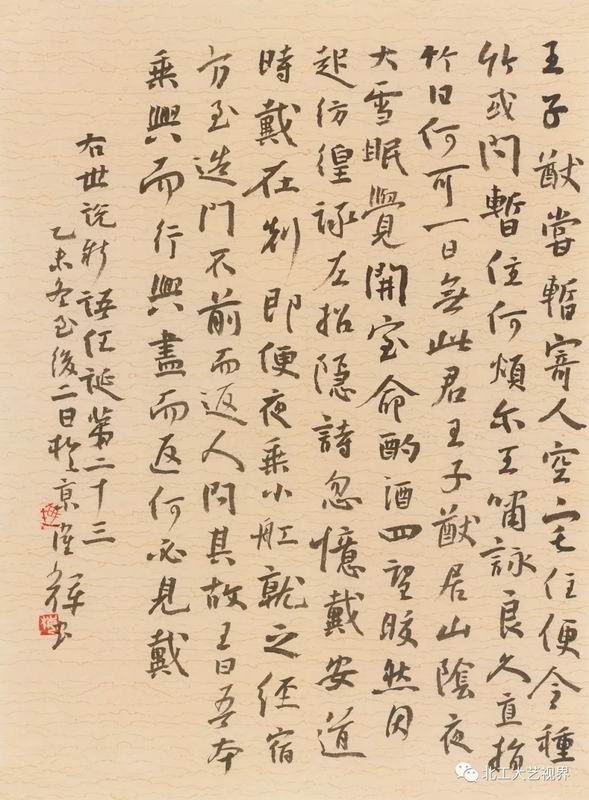 王子猷嘗暫寄人空宅住便令種
竹或问暫住何煩尔王嘯詠良久直指
竹曰何可一日無此君王子猷居山陰夜
大雪眠覺開室命酌酒四望皎然因
起彷徨詠左招隱詩忽憶戴安道
時戴在剡即便夜乘小舡就之經宿
方至造门不前而返人问其故王曰吾本
乘興而行興盡而返何必見戴
右世说新語任誕第二十三
乙未冬至後二日於京
北工大艺视界